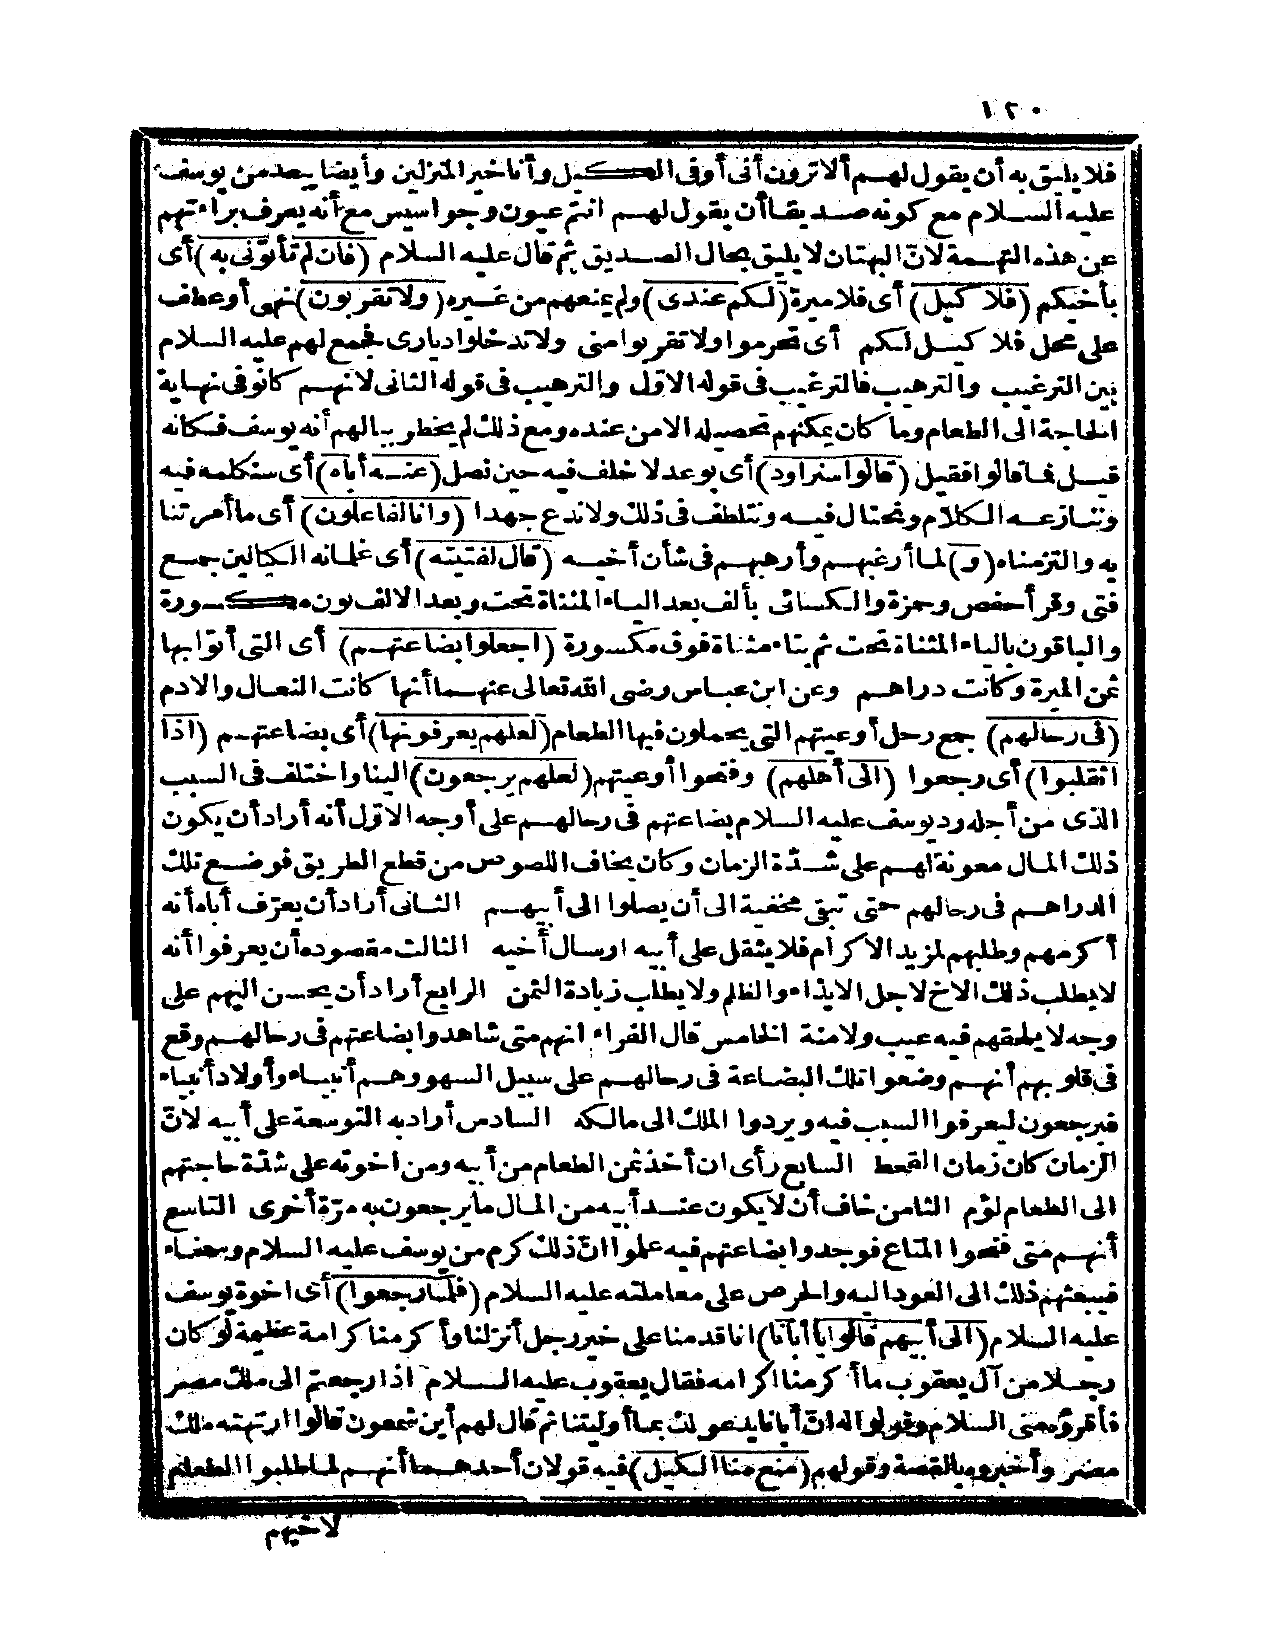 ١٢٠
فلا يليق به أن يقول لهم ألا ترون أنى أوفى الكيل وأنا خير المنزلين وأيضا يبعد من يوسف
عليه السلام مع كونه صديقا أن يقول لهم انتم عيون وجواسيس مع أنه يعرف براءتهم
عن هذه التهمة لانّ البهتان لا يليق بحال الصديق ثم قال عليه السلام (فان لم تأتونى به) أى
بأخيكم (فلا كيل) أى فلا ميرة (لكم عندى) ولم يمنعهم من غيره (ولا تقربون) نهى أو عطف
على محل فلا كيل لكم أى تحرموا ولا تقربوا منى ولا تدخلوا ديارى فجمع لهم عليه السلام
بين الترغيب والترهيب فالترغيب فى قوله الاوّل والترهيب فى قوله الثانى لانهم كانوا فى نهاية
الحاجة الى الطعام وما كان يمكنهم تحصيله الا من عنده ومع ذلك لم يخطر ببالهم أنه يوسف فكانه
قيل فما قالوا فقيل (قالوا سنراود) أى بوعد لا خلف فيه حين نصل (عنه أباه) أى سنكلمه فيه
وننازعه الكلام ونحتال فيه ونتلطف فى ذلك ولا ندع جهدا (وانا لفاعلون) أى ما أمرتنا
به والتزمناه (و) لما أرغبهم وأرهبهم فى شأن أخيه (قال لفتيته) أى غلمانه الكيالين جمع
فتى وقرأ حفص وحمزة والكسائى بألف بعد الياء المثناة تحت وبعد الالف نون مكسورة
والباقون بالياء المثناة تحت ثم بتاء مثناة فوق مكسورة (اجعلوا بضاعتهم) أى التى أتوا بها
ثمن الميرة وكانت دراهم وعن ابن عباس رضى الله تعالى عنهما أنها كانت النعال والادم
(فى رحالهم) جمع رحل أوعيتهم التى يحملون فيها الطعام (لعلهم يعرفونها) أى بضاعتهم (اذا
انقلبوا) أى رجعوا (الى أهلهم) وفتحوا أوعيتهم (لعلهم يرجعون) الينا واختلف فى السبب
الذى من أجله رد يوسف عليه السلام بضاعتهم فى رحالهم على أوجه الاوّل أنه أراد أن يكون
ذلك المال معونة لهم على شدّة الزمان وكان يخاف اللصوص من قطع الطريق فوضع تلك
الدراهم فى رحالهم حتى تبقى مخفية الى أن يصلوا الى أبيهم الثانى أراد أن يعرّف أباه أنه
أكرمهم وطلبهم لمزيد الاكرام فلا يثقل على أبيه ارسال أخيه الثالث مقصوده أن يعرفوا أنه
لا يطلب ذلك الاخ لاجل الايذاء والظلم ولا يطلب زيادة الثمن الرابع أراد أن يحسن اليهم على
وجه لا يلحقهم فيه عيب ولا منة الخامس قال الفراء انهم متى شاهدوا بضاعتهم فى رحالهم وقع
فى قلوبهم أنهم وضعوا تلك البضاعة فى رحالهم على سبيل السهو وهم أنبياء وأولاد أنبياء
فيرجعون ليعرفوا السبب فيه ويردوا الملك الى مالكه السادس أراد به التوسعة على أبيه لانّ
الزمان كان زمان القحط السابع رأى ان أخذ ثمن الطعام من أبيه ومن اخوته على شدّة حاجتهم
الى الطعام لؤم الثامن خاف أن لا يكون عند أبيه من المال ما يرجعون به مرّة أخرى التاسع
أنهم متى فتحوا المتاع فوجدوا بضاعتهم فيه علموا انّ ذلك كرم من يوسف عليه السلام وسخاء
فيبعثهم ذلك الى العود اليه والحرص على معاملته عليه السلام (فلما رجعوا) أى اخوة يوسف
عليه السلام (الى أبيهم قالوا يا أبانا) انا قدمنا على خير رجل أنزلنا وأكرمنا كرامة عظيمة لو كان
رجلا من آل يعقوب ما أكرمنا اكرامه فقال يعقوب عليه السلام اذا رجعتم الى ملك مصر
فأقرؤه منى السلام وقولوا له انّ أبانا يدعو لك بما أوليتنا ثم قال لهم أين شمعون قالوا ارتهنه ملك
مصر وأخبروه بالقصة وقولهم (منع منا الكيل) فيه قولان أحدهما أنهم لما طلبوا الطعام
لاخيهم